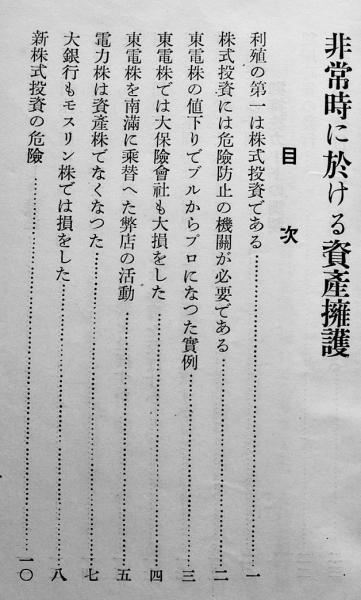 非常時に於ける資產擁護
目次
利殖の第一は株式投資である…………一
株式投資には危險防止の機關が必要である…………二
東電株の値下りでブルからプロになつた實例…………三
東電株では大保險會社も大損をした…………四
東電株を南滿に乘替へた弊店の活動…………五
電力株は資產株でなくなつた…………七
大銀行もモスリン株では損をした…………八
新株式投資の危險…………一〇